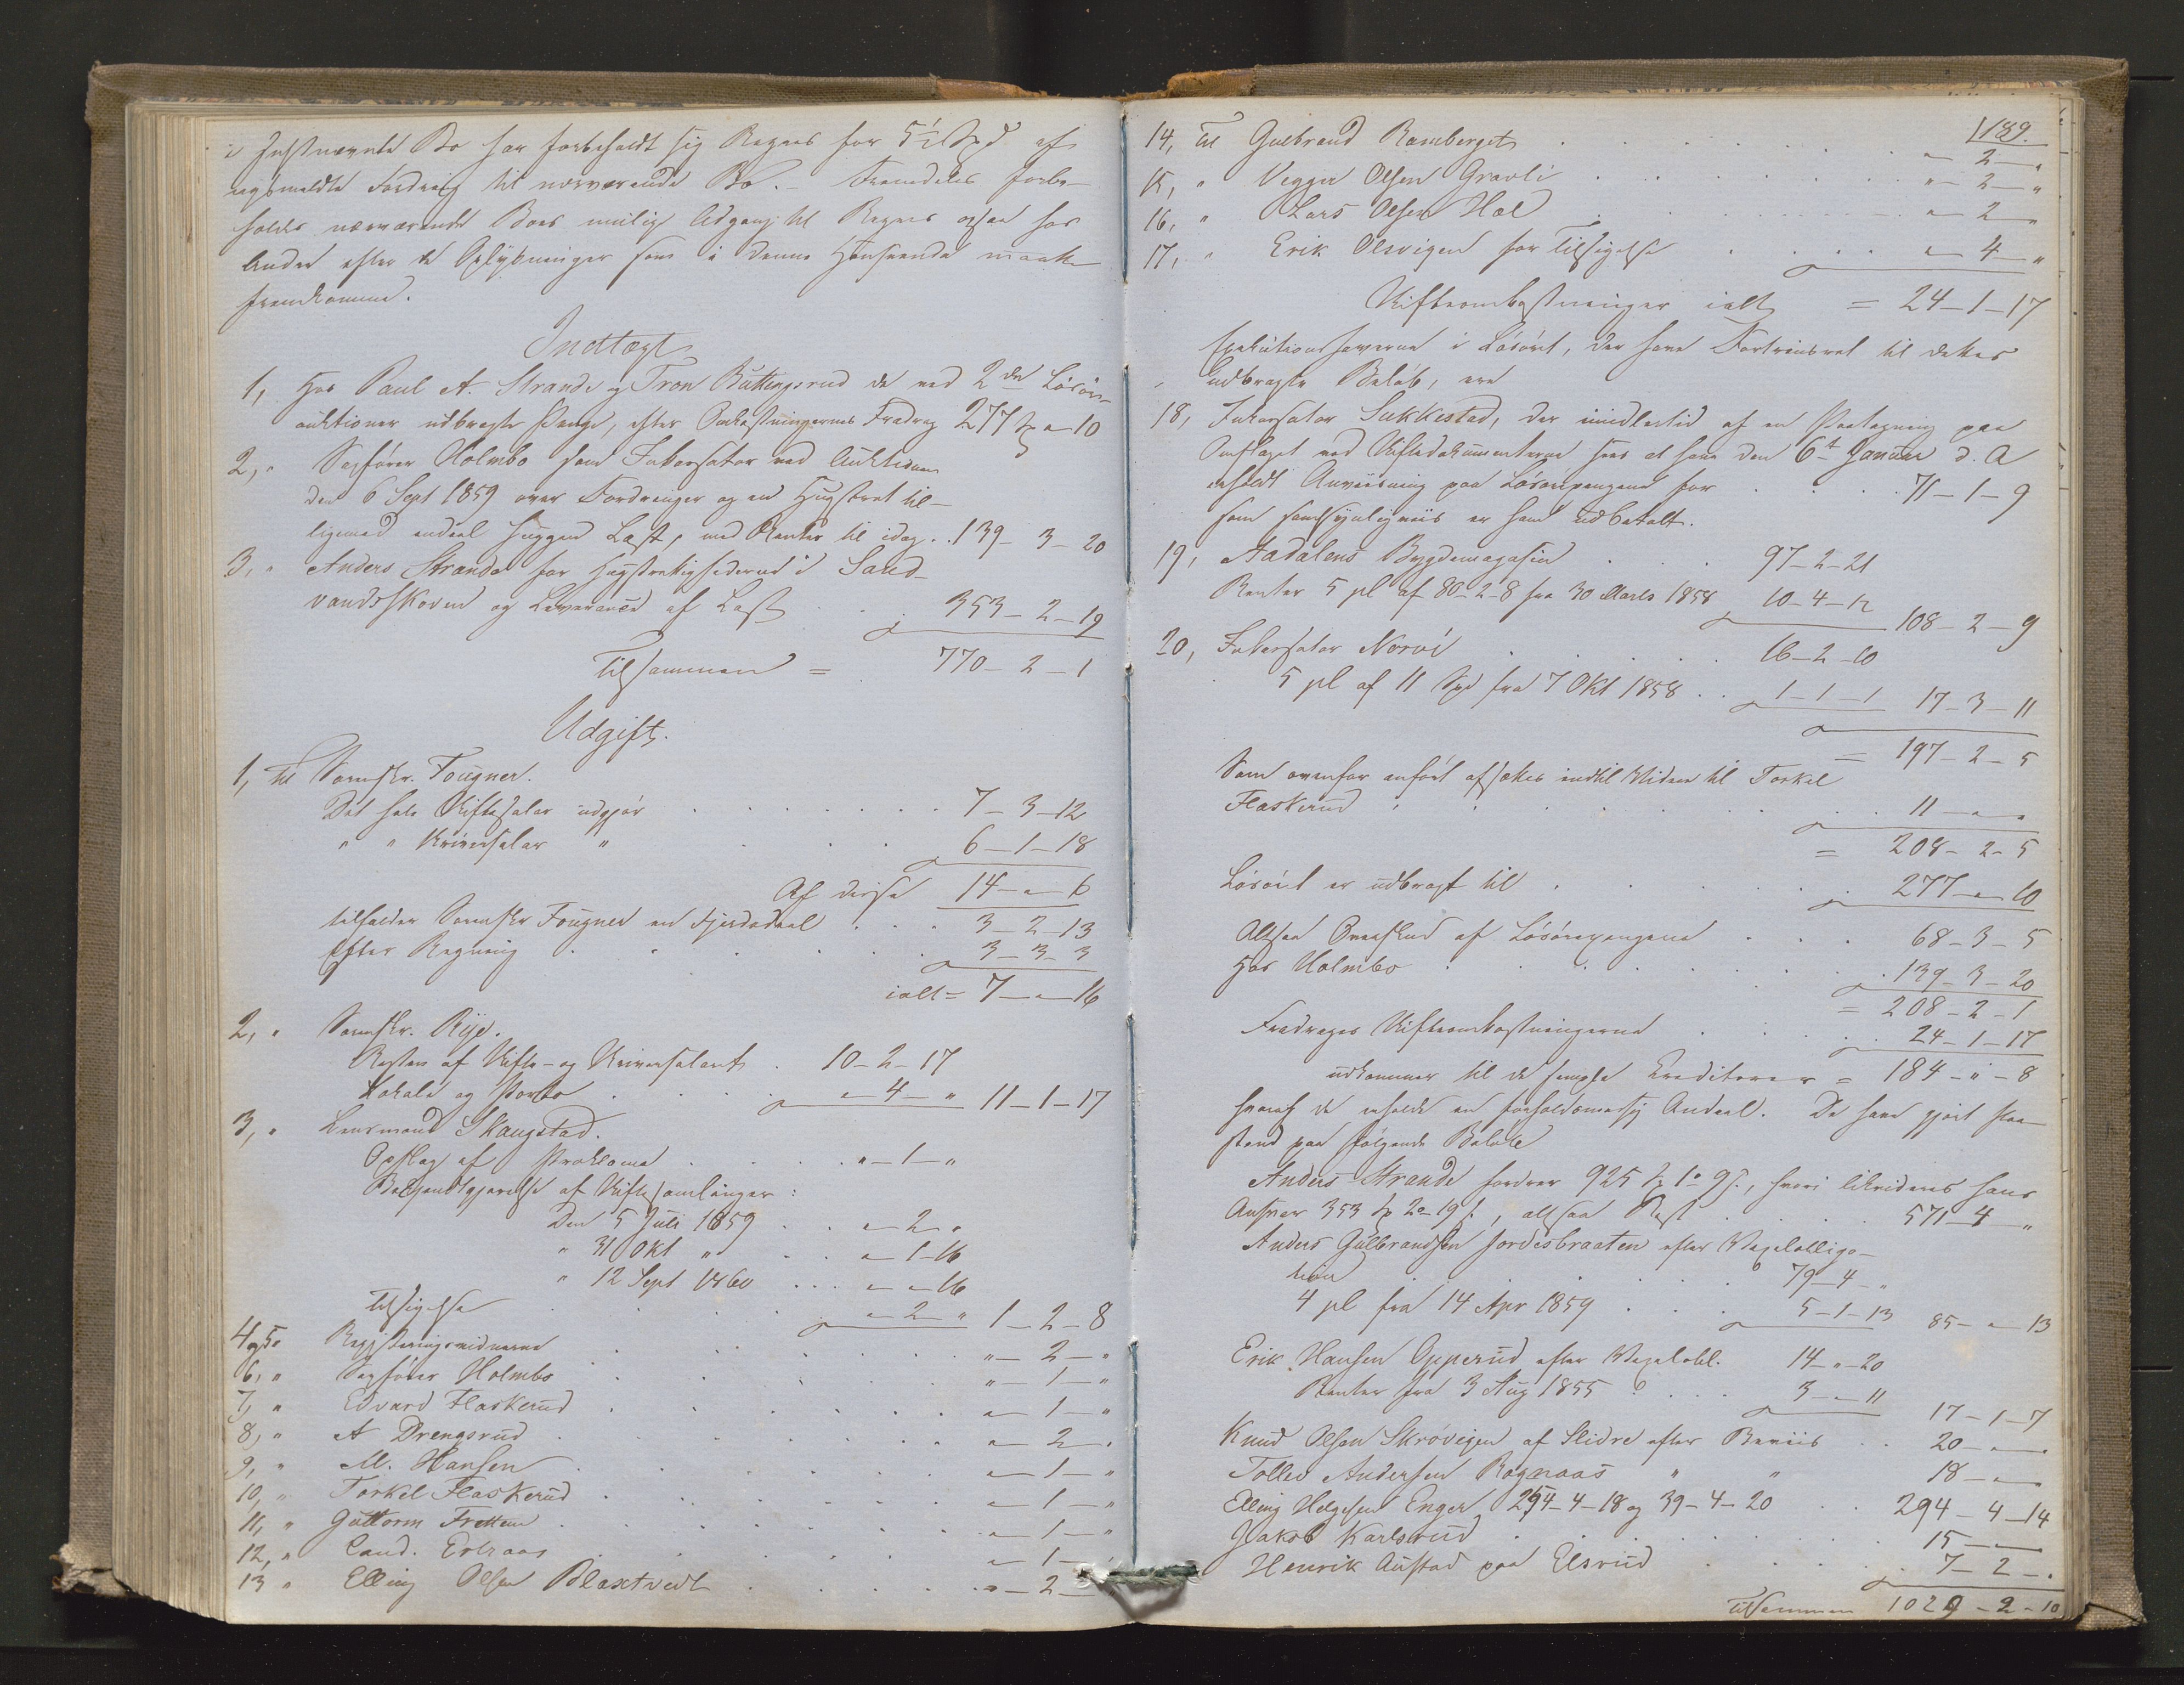 i sidstnævnte Bo har forbeholdt sig Regres for 51 Spd af
nysmeldte Fordring til nærværende Bo. – Fremdeles forbe-
holdes nærværende Boes mulige Adgang til Regres ogsaa hos
Andre efter de Oplysninger som i denne Henseende maatte
fremkomme.
Indtægt
1, Hos Paul A. Strande og Tron Buttingsrud de ved 2de Løsøre-
auktioner udbragte Penge, efter Omkostningernes Fradrag 277 Sp " 10
2, " Sagfører Holmbo som Inkassator ved Auktionen
den 6 Sept 1859 over Fordringer og en Hugstret til-
ligemed endeel huggen Last, med Renter til idag . . 139 – 3 – 20
3, " Anders Strande for Hugstrettighederne i Sand-
vandsskoven og Leverance af Last . . 353 – 2 – 19
Tilsammen = 770 – 2 – 1
Udgift.
1, til Sorenskr. Fougner.
Det hele Skiftesalar udgjør . . . 7 – 3 – 12
" " Skriversalar " . . 6 – 1 – 18
Af disse 14 – " – 6
tilfalder Sorenskr Fougner en Fjerdedeel . . . 3 – 2 – 13
Efter Regning . . . 3 – 3 – 3
ialt = 7 – " – 16
2, " Sorenskr. Rye.
Resten af Skifte- og Skriversalariet . 10 – 2 – 17
Lokale og Porto . . . " – 4 – " 11 – 1 – 17
3, " Lensmand Skaugstad.
Opslag af Proklama . . . " – 1 – "
Bekjendtgjørelse af Skiftesamlinger:
Den 5 Juli 1859 . . " – 2 – "
" 31 Okt " . . " – 1 – 16
" 12 Sept 1860 . . . " – " – 16
Tilsigelse . . . " – 2 – " 1 – 2 – 8
4 og 5, Registreringsvidnerne . . . " – 2 – "
6, " Sagfører Holmbo . . . " – 1 – "
7, " Edvard Flaskerud . . . " – 1 – "
8, " A Drengsrud . . . " – 2 – "
9, " M. Hansen . . . " – 1 – "
10, " Torkel Flaskerud . . . " – 1 – "
11, " Guttorm Frettem . . . " – 1 – "
12, " Cand. . . . " – 1 – "
13 " Elling Olsen Blaxtvedt . . . " – 2 – "
189.
14, Til Gulbrand Ramberget . . . " – 2 – "
15, " Vegger Olsen Gravli . . . " – 2 – "
16, " Lars Olsen Hol . . . " – 2 – "
17, " Erik Olsvigen for Tilsigelse . . . " – 4 – "
Skifteomkostninger ialt = 24 – 1 – 17
Exekutionshaverne i Løsøret, der have Fortrinsret til dettes
udbragte Beløb, ere
18, Inkassator Sukkestad, der imidlertid af en Paategning paa
Omslaget ved Skiftedokumenterne sees at have den 6te Januar d. A
erholdt Anviisning paa Løsørepengene for . . . 71 – 1 – 9
som sandsynligviis er ham udbetalt.
19, Aadalens Bygdemagasin . . . 97 – 2 – 21
Renter 5 pCt af 80 – 2 – 8 fra 30 Marts 1858 10 – 4 – 12 108 – 2 – 9
20, Inkassator Norøi . . . 16 – 2 – 10
5 pCt af 11 Spd fra 7 Okt 1858 . . 1 – 1 – 1 17 – 3 – 11
= 197 – 2 – 5
Som ovenfor anført afsættes indtil Videre til Torkel
Flaskerud . . . 11 – " – "
= 208 – 2 – 5
Løsøret er udbragt til . . . 277 – " – 10
Altsaa Overskud af Løsørepengene . . . 68 – 3 – 5
Hos Holmbo . . . 139 – 3 – 20
= 208 – 2 – 1
Fradrages Skifteomkostningerne . . . 24 – 1 – 17
udkommer til de simple Creditorer = 184 – " – 8
hvoraf de erholde en forholdsmæssig Andeel. De have gjort Paa-
stand paa følgende Beløb
Anders Strande fordrer 925 Sp 1 " 9 s., hvori likvideres hans
Ansvar 353 Sp 2 " 19 s., altsaa Rest . . . 571 – 4 – "
Anders Gulbrandsen Jordesbraaten efter Vexelobliga-
tion . . . 79 – 4 – "
4 pCt fra 14 Apr 1859 . . . 5 – 1 – 13 85 – " – 13
Erik Hansen Opperud efter Vexelobl. 14 " 20
Renter fra 3 Aug 1855 . . . 3 – " – 11 17 – 1 – 7
Knud Olsen Skrøvigen af Slidre efter Beviis . . 20 – " – "
Tollev Andersen Rognaas " " 18 – " – "
Elling Helgesen Enger 254 – 4 – 18 og 39 – 4 – 20 . . 294 – 4 – 14
Jakob Karlsrud . . . 15 – " – "
Henrik Austad paa Elsrud . . . 7 – 2 – "
Tilsammen 1029 – 2 – 10